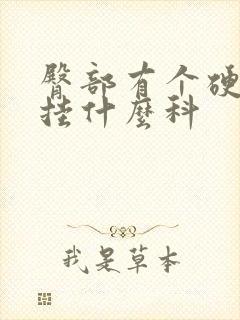 臀部有个硬
挂什麼科
我是草本